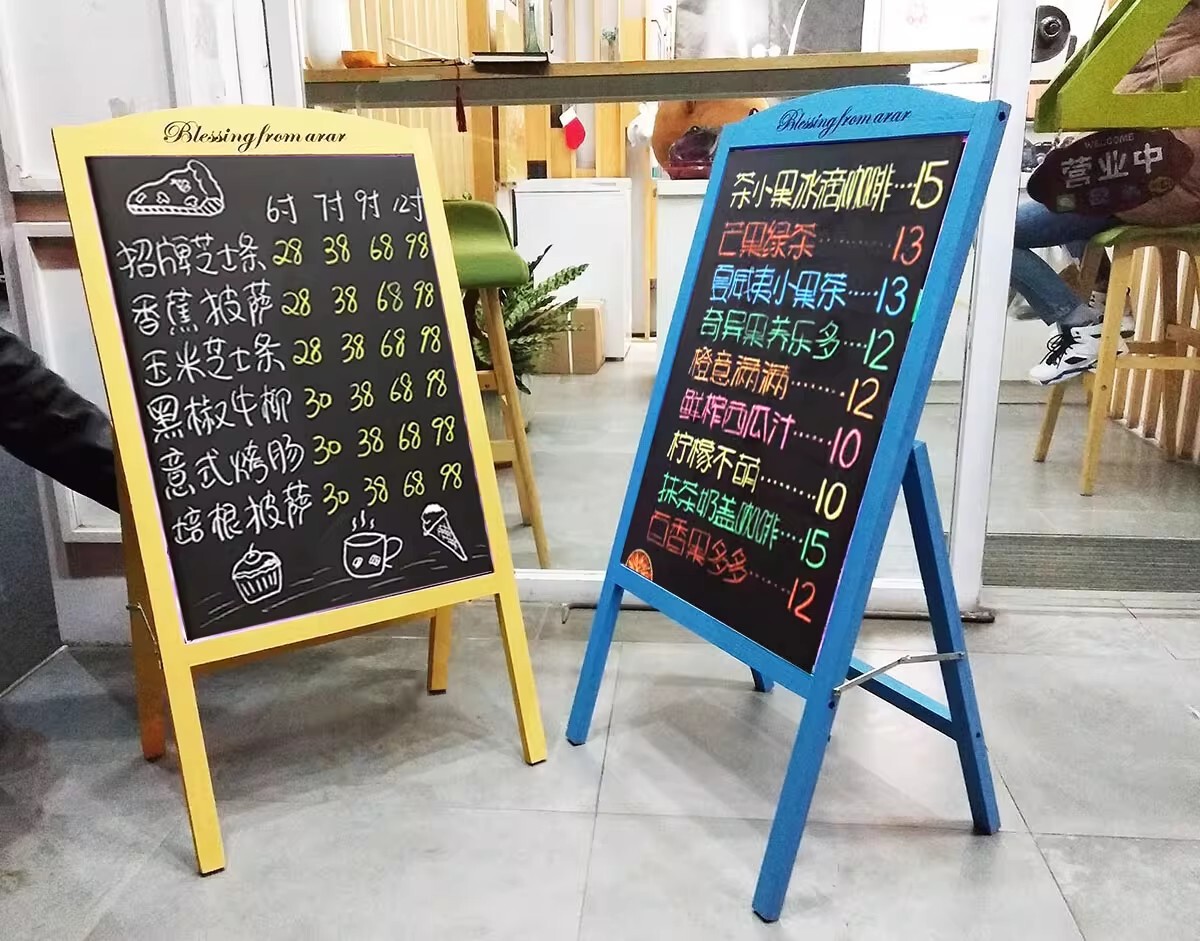 Blessing from arar
6寸 7寸 9寸 12寸
招牌芝士条 28 38 68 98
香蕉披萨 28 38 68 98
玉米芝士条 28 38 68 98
黑椒牛柳 30 38 68 98
意式烤肠 30 38 68 98
培根披萨 30 38 68 98
Blessing from arar
茶小果冰滴咖啡···15
芒果绿茶········13
夏威夷小果茶····13
奇异果养乐多···12
橙意满满·······12
鲜榨西瓜汁·····10
柠檬不萌········10
抹茶奶盖咖啡···15
百香果多多······12
WELCOME
营业中